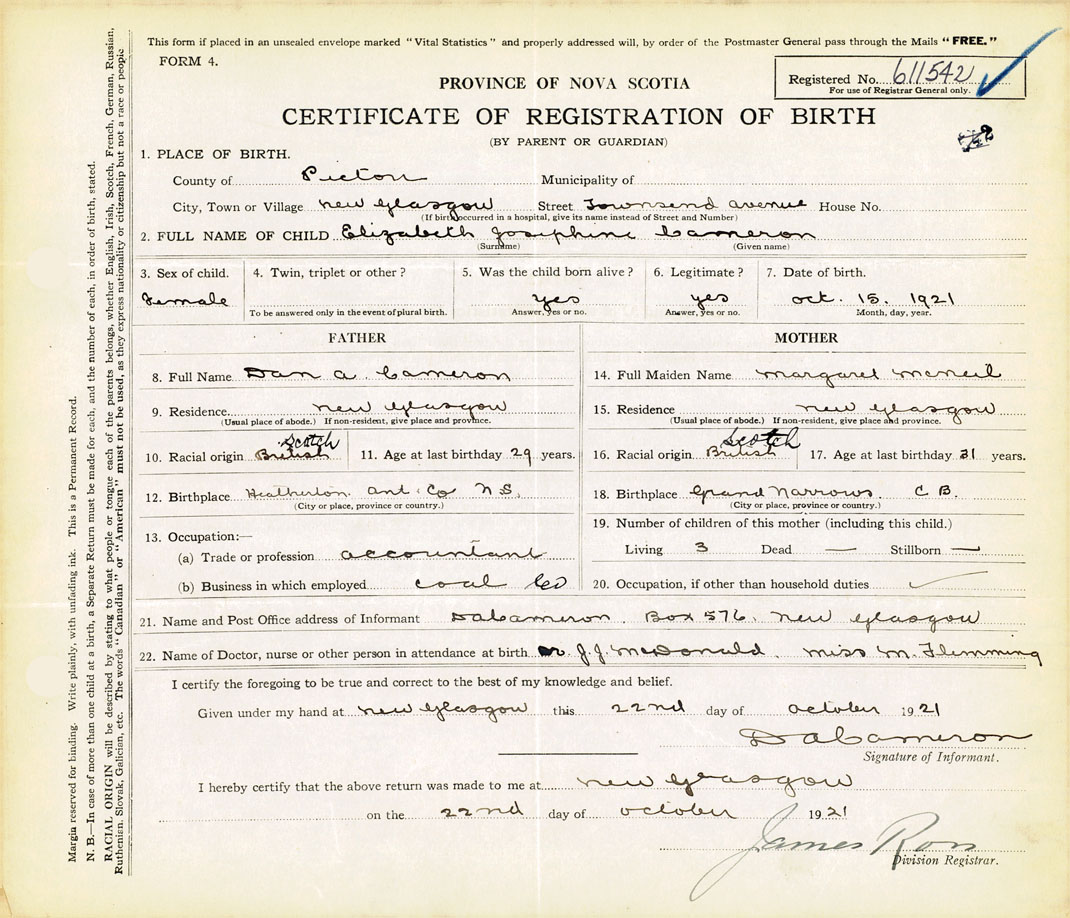 This form if placed in an unsealed envelope marked "Vital Statistics" and properly addressed will, by order of the Postmaster General pass through the Mails "FREE."
FORM 4.
Registered No. 611542
For use of Registrar General only.
PROVINCE OF NOVA SCOTIA
CERTIFICATE OF REGISTRATION OF BIRTH
(BY PARENT OR GUARDIAN)
1. PLACE OF BIRTH.
County of Picton Municipality of
City, Town or Village New Glasgow Street Townsend avenue House No.
(If birth occurred in a hospital, give its name instead of Street and Number)
2. FULL NAME OF CHILD Elizabeth Josephine Cameron
(Surname) (Given name)
3. Sex of child. 4. Twin, triplet or other? 5. Was the child born alive? 6. Legitimate? 7. Date of birth.
Female yes yes oct. 15. 1921
To be answered only in the event of plural birth. Answer, yes or no. Answer, yes or no. Month, day, year.
FATHER MOTHER
8. Full Name Dan A. Cameron 14. Full Maiden Name Margaret McNeil
9. Residence New Glasgow 15. Residence New Glasgow
(Usual place of abode.) If non-resident, give place and province. (Usual place of abode.) If non-resident, give place and province.
Scotch Scotch
10. Racial origin British 11. Age at last birthday 29 years. 16. Racial origin British 17. Age at last birthday 31 years.
12. Birthplace Heatherton. Ant. Co N.S. 18. Birthplace Grand Narrows. C B.
(City or place, province or country.) (City or place, province or country.)
13. Occupation:— 19. Number of children of this mother (including this child.)
(a) Trade or profession accountant Living 3 Dead — Stillborn —
(b) Business in which employed coal Co 20. Occupation, if other than household duties
21. Name and Post Office address of Informant DACameron. Box 576. New Glasgow
22. Name of Doctor, nurse or other person in attendance at birth Dr. J.J. McDonald. Miss M. Flemming
I certify the foregoing to be true and correct to the best of my knowledge and belief.
Given under my hand at New Glasgow this 22nd day of October 1921
DACameron
Signature of Informant.
I hereby certify that the above return was made to me at New Glasgow
on the 22nd day of October 1921
James Ross
Division Registrar.
Margia reserved for binding. Write plainly, with unfading ink. This is a Permanent Record.
N. B.—In case of more than one child at a birth, a Separate Return must be made for each, and the number of each, in order of birth, stated.
RACIAL ORIGIN will be described by stating to what people or tongue each of the parents belongs, whether English, Irish, Scotch, French, German, Russian,
Ruthenian, Slovak, Galician, etc. The words "Canadian" or "American" must not be used, as they express nationality or citizenship but not a race or people